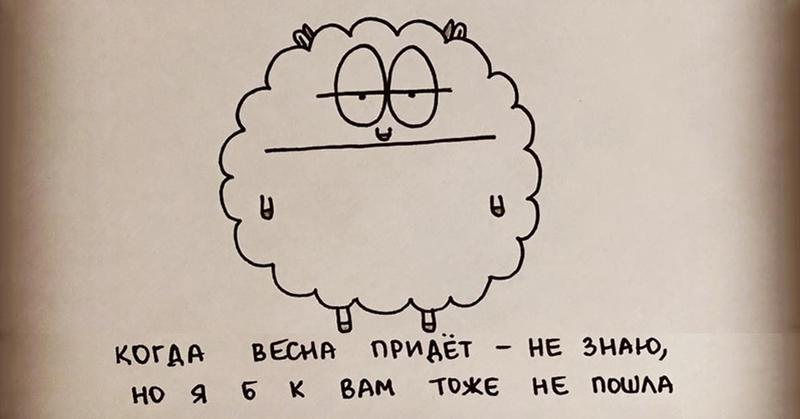 КОГДА ВЕСНА ПРИДЁТ – НЕ ЗНАЮ,
НО Я Б К ВАМ ТОЖЕ НЕ ПОШЛА